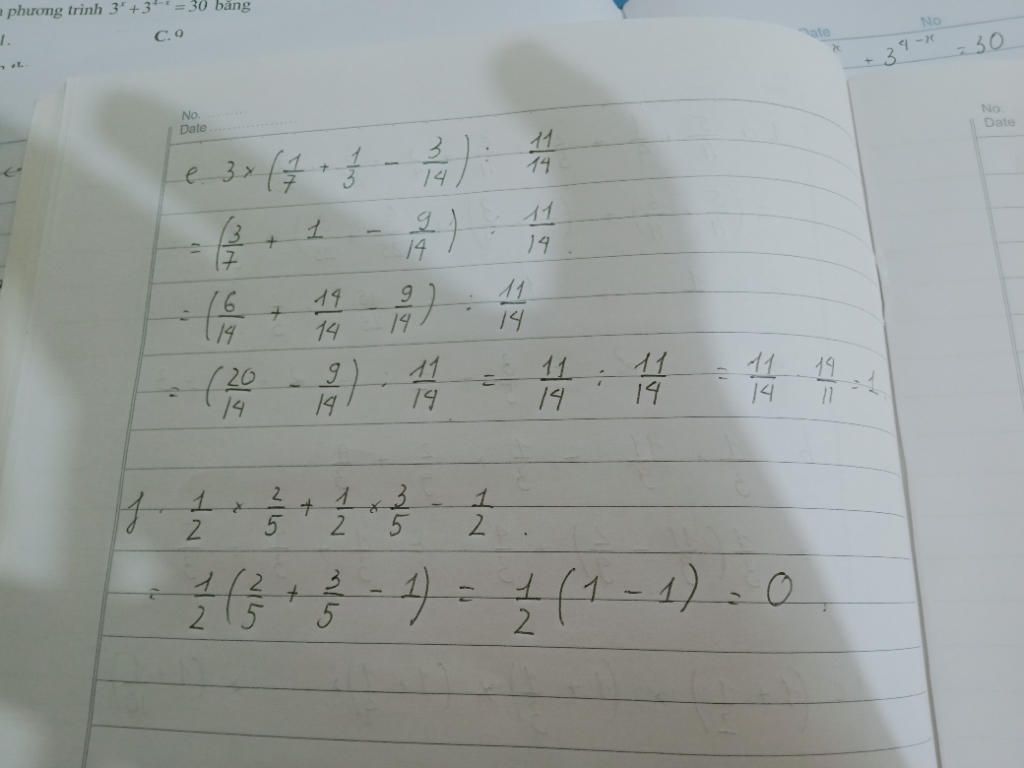 phương trình 3^x + 3^{4-x} = 30 bằng
C. 9
No
Date
+ 3^{4-x} = 30
No.
Date
No.
Date
e. 3 × (1/7 + 1/3 - 3/14) : 11/14
= (3/7 + 1 - 9/14) : 11/14.
= (6/14 + 14/14 - 9/14) : 11/14
= (20/14 - 9/14) : 11/14 = 11/14 : 11/14 = 11/14 . 14/11 = 1.
f. 1/2 × 2/5 + 1/2 × 3/5 - 1/2.
= 1/2 (2/5 + 3/5 - 1) = 1/2 (1 - 1) = 0.